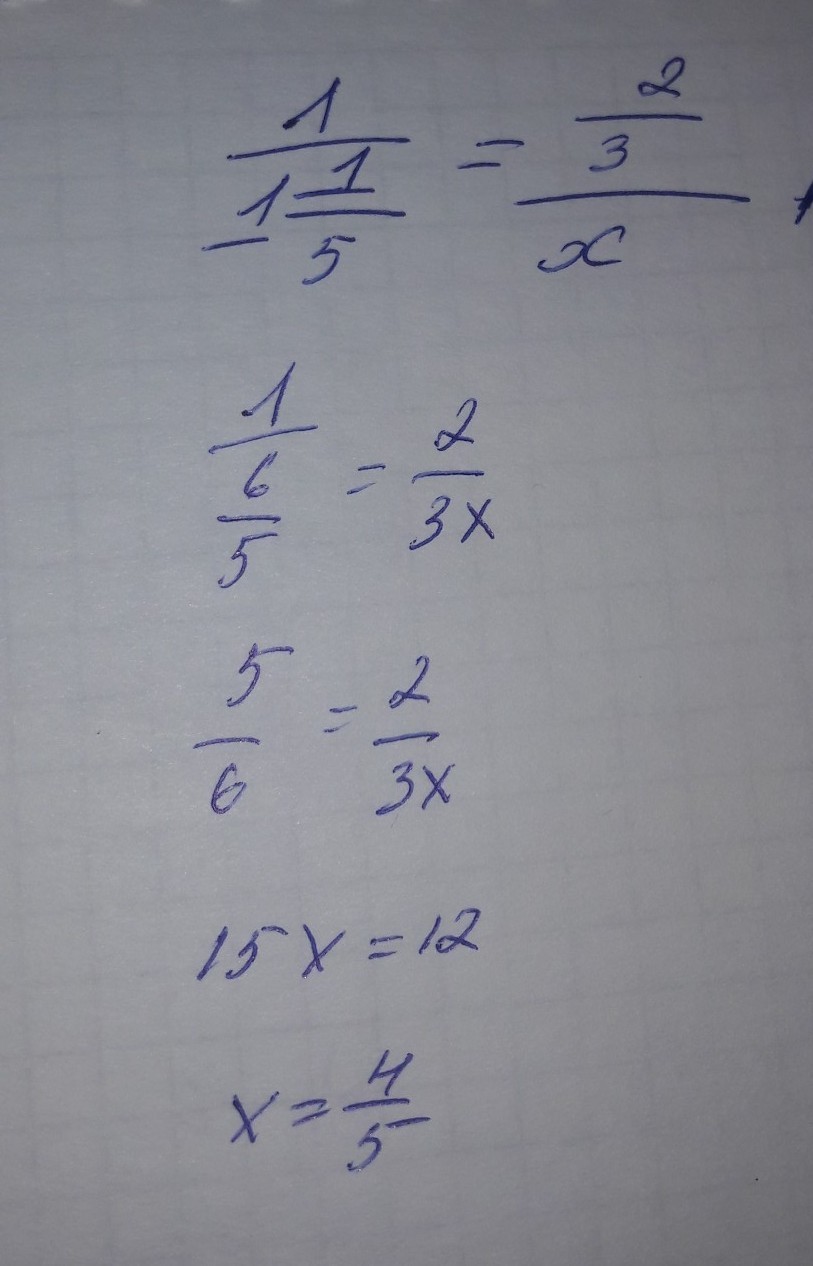 1/(1 1/5) = (2/3)/x
1/(6/5) = 2/3x
5/6 = 2/3x
15x = 12
x = 4/5